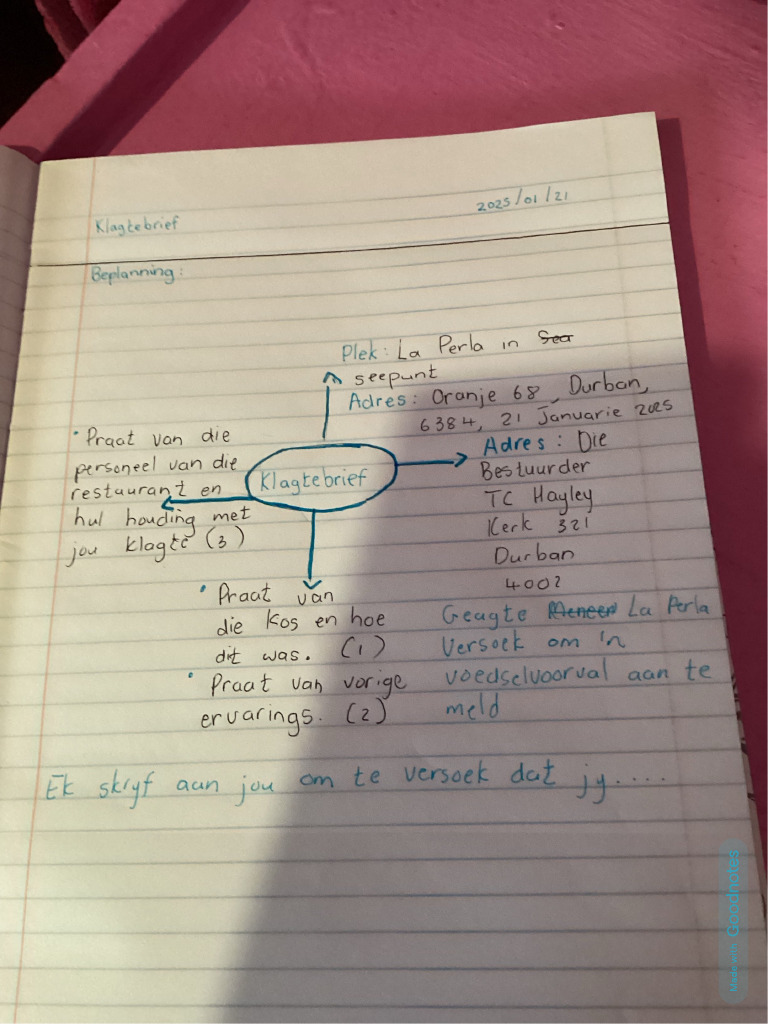 Klagtebrief
2025/01/21
Beplanning:
Plek: La Perla in
seepunt
Adres: Oranje 68, Durban,
6384, 21 Januarie 2025
Klagtebrief
• Praat van die
personeel van die
restaurant en
hul houding met
jou klagte (3)
Adres: Die
Bestuurder
TC Hayley
Kerk 321
Durban
4002
• Praat van
die kos en hoe
dit was. (1)
• Praat van vorige
ervarings. (2)
Geagte Meneer La Perla
Versoek om 'n
voedselvoorval aan te
meld
Ek skryf aan jou om te versoek dat jy.....
Made with Goodnotes